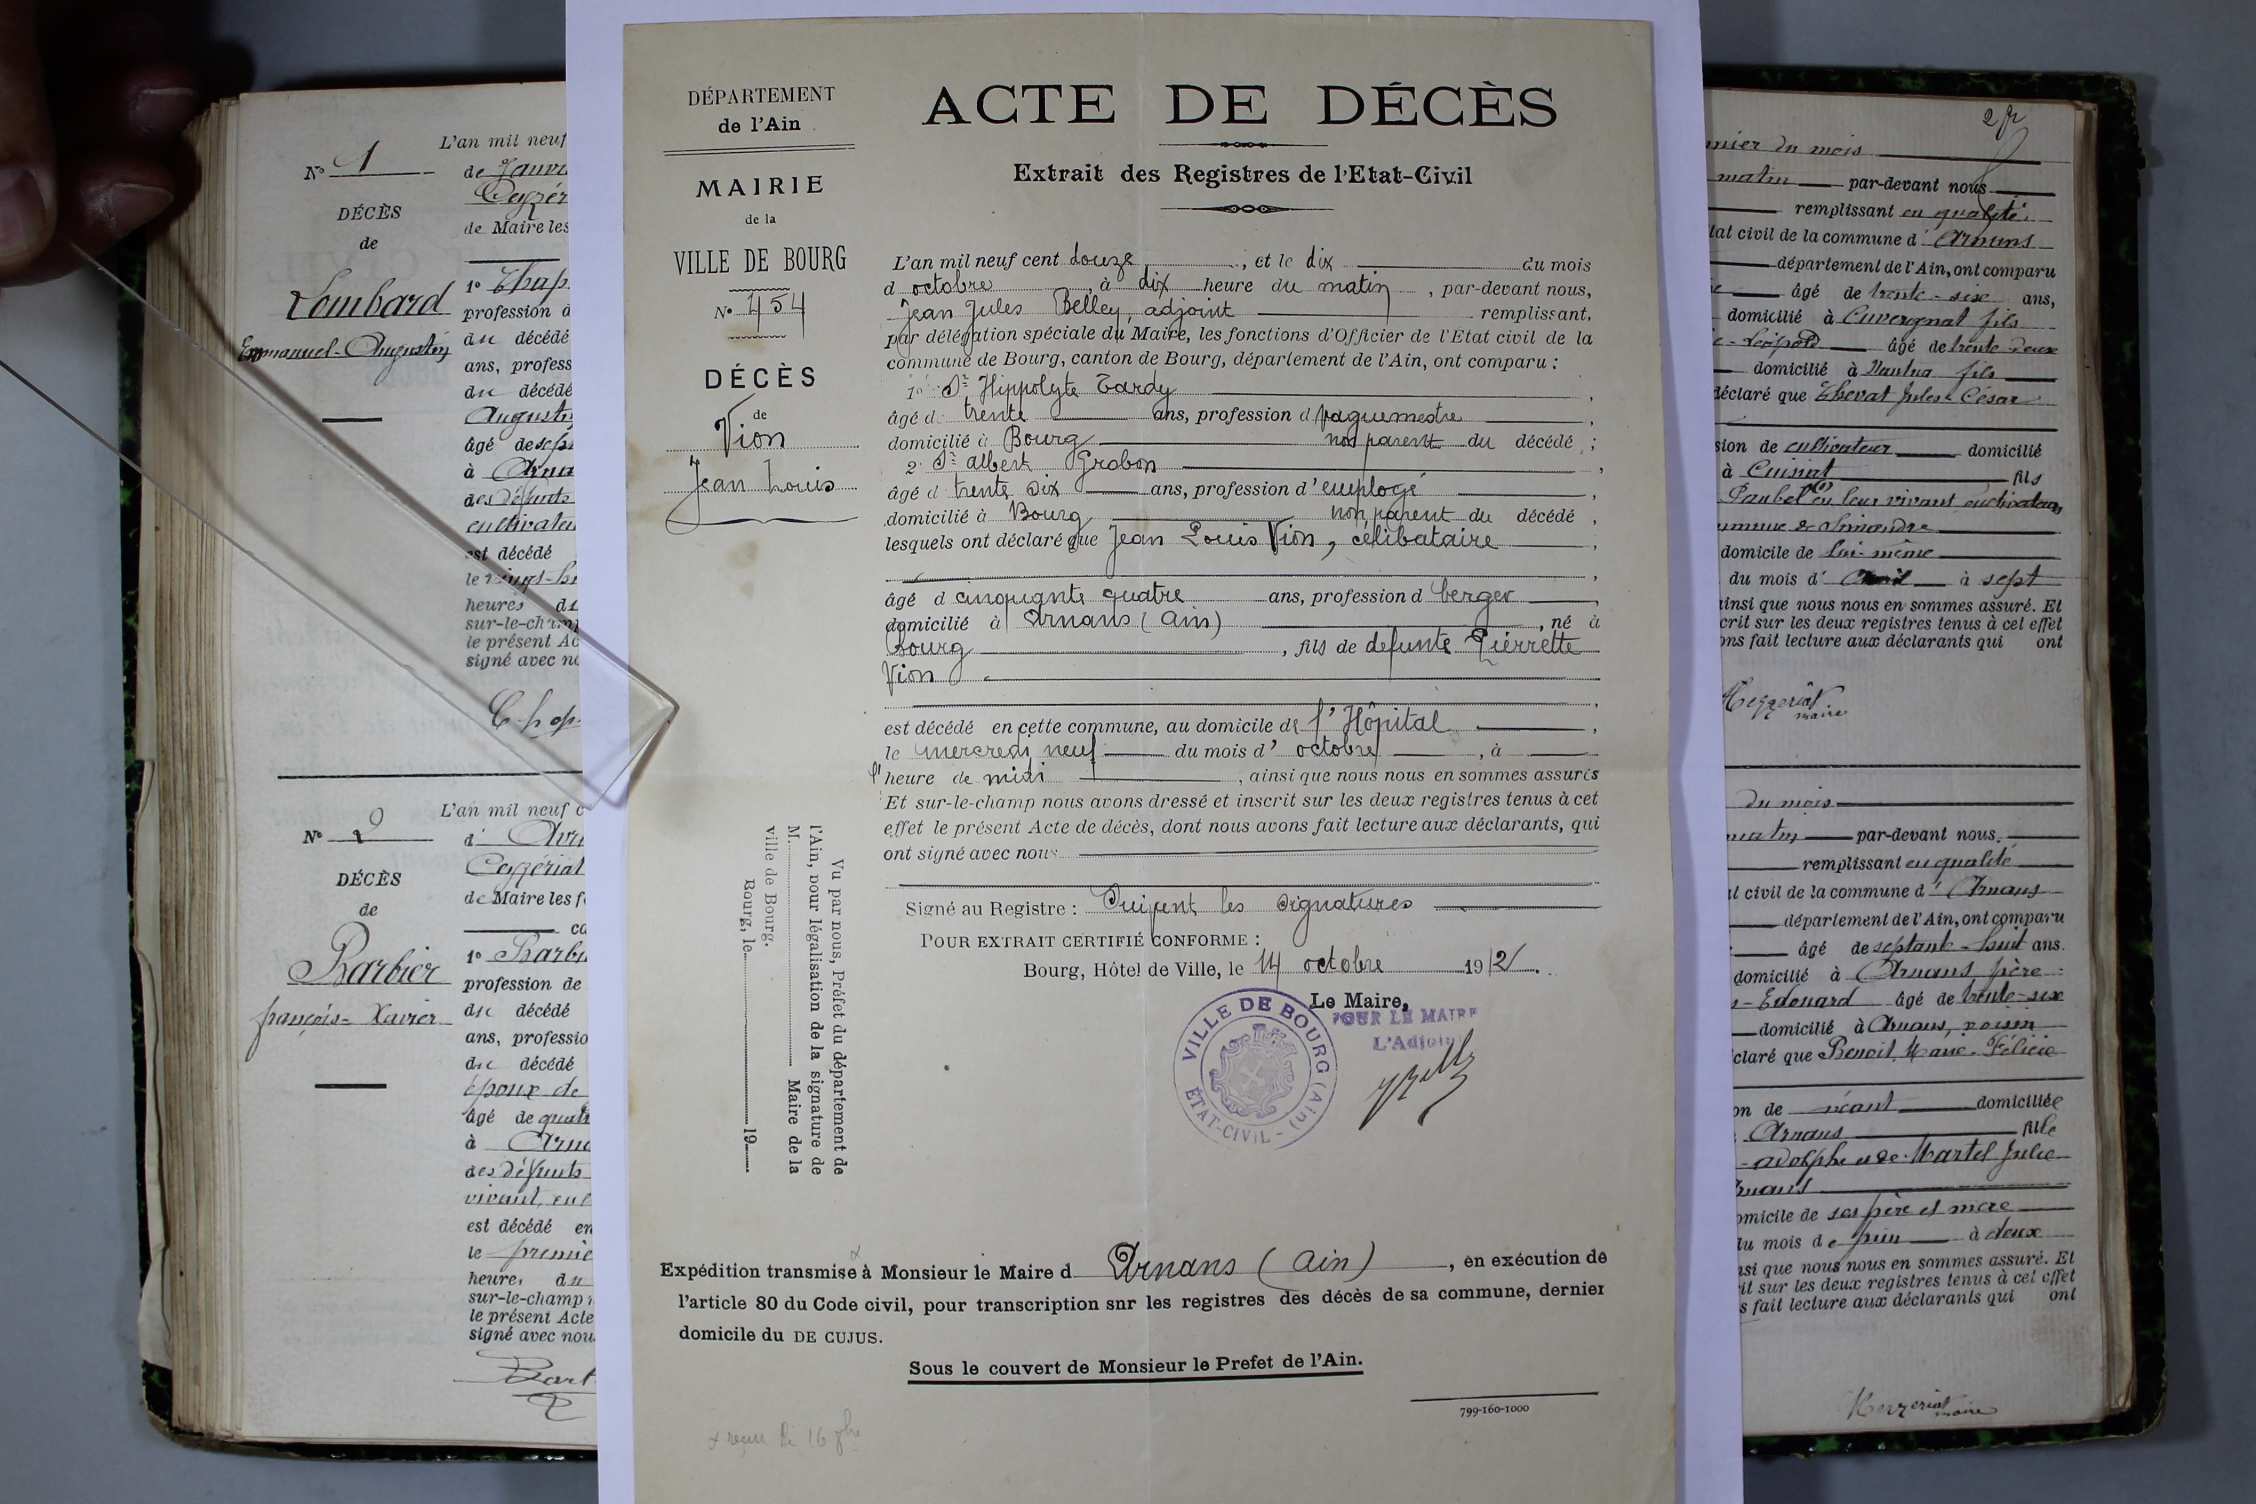 N° 1
DÉCÈS
de
Lombard
Emmanuel-Augustin
L'an mil neuf
de Janvi
Ceyzér
de Maire les
1° Chap
profession d
du décédé
ans, profess
du décédé
Augustin
âgé de sep
à Arna
des défunts
cultivateu
est décédé
le vingt-hu
heures du
sur-le-champ
le présent Ac
signé avec no
Chap
N° 2
DÉCÈS
de
Barbier
françois-Xavier
L'an mil neuf c
d' Avri
Ceyzériat
de Maire les f
co
1° Barbi
profession de
du décédé
ans, professio
du décédé
époux de
âgé de quatr
à Arna
des défunts
vivant, cul
est décédé en
le premie
heure, du
sur-le-champ
le présent Acte
signé avec nou
Barb
DÉPARTEMENT
de l'Ain
MAIRIE
de la
VILLE DE BOURG
N° 454
DÉCÈS
de
Vion
Jean Louis
Vu par nous, Préfet du département de
l'Ain, pour légalisation de la signature de
M. Maire de la
ville de Bourg.
Bourg, le 19
ACTE DE DÉCÈS
Extrait des Registres de l'Etat-Civil
L'an mil neuf cent douze, et le dix du mois
d octobre, à dix heure du matin, par-devant nous,
Jean Jules Belley, adjoint remplissant,
par délégation spéciale du Maire, les fonctions d'Officier de l'Etat civil de la
commune de Bourg, canton de Bourg, département de l'Ain, ont comparu :
1° Sr Hippolyte Tardy,
âgé d trente ans, profession d vaguemestre,
domicilié à Bourg non parent du décédé ;
2° Sr albert Grobon,
âgé d trente six ans, profession d'employé,
domicilié à Bourg non parent du décédé,
lesquels ont déclaré que Jean Louis Vion, célibataire,
âgé d cinquante quatre ans, profession d berger,
domicilié à Arnans (Ain), né à
Bourg, fils de defunte Pierrette
Vion
est décédé en cette commune, au domicile de l'Hôpital,
le mercredi neuf du mois d' octobre, à
l'heure de midi, ainsi que nous nous en sommes assurés
Et sur-le-champ nous avons dressé et inscrit sur les deux registres tenus à cet
effet le présent Acte de décès, dont nous avons fait lecture aux déclarants, qui
ont signé avec nous
Signé au Registre : Suivent les signatures
POUR EXTRAIT CERTIFIÉ CONFORME :
Bourg, Hôtel de Ville, le 14 octobre 1912.
Le Maire,
POUR LE MAIRE
L'Adjoint
VILLE DE BOURG (Ain)
ÉTAT-CIVIL
Expédition transmise à Monsieur le Maire d Arnans (Ain), en exécution de
l'article 80 du Code civil, pour transcription snr les registres des décès de sa commune, dernier
domicile du DE CUJUS.
Sous le couvert de Monsieur le Prefet de l'Ain.
799-160-1000
x reçu le 16 8bre
2
mier du mois
matin par-devant nous
remplissant en qualité
tat civil de la commune d' Arnans
département de l'Ain, ont comparu
âgé de trente-six ans,
domicilié à Cuvergnat fils
e-Léopold âgé de trente deux
domicilié à fils
déclaré que Thevat Jules-César
sion de cultivateur domicilié
à Cuisiat fils
en leur vivant cultivateurs
commune de Simandre
domicile de lui-même
du mois d' Avril à sept
ainsi que nous nous en sommes assuré. Et
crit sur les deux registres tenus à cet effet
ons fait lecture aux déclarants qui ont
Meyzeriat
maire
du mois
matin par-devant nous.
remplissant en qualité
l civil de la commune d' Arnans
département de l'Ain, ont comparu
âgé de septante-huit ans.
domicilié à Arnans, père
-Edouard âgé de trente-six
domicilié à Arnans, voisin
claré que Benoit, Marie-Félicie
on de néant domiciliée
Arnans fille
-adolphe et de Martel Julie
Arnans
omicile de ses père et mère
du mois de juin à deux
nsi que nous nous en sommes assuré. Et
it sur les deux registres tenus à cet effet
s fait lecture aux déclarants qui ont
Meyzeriat
maire